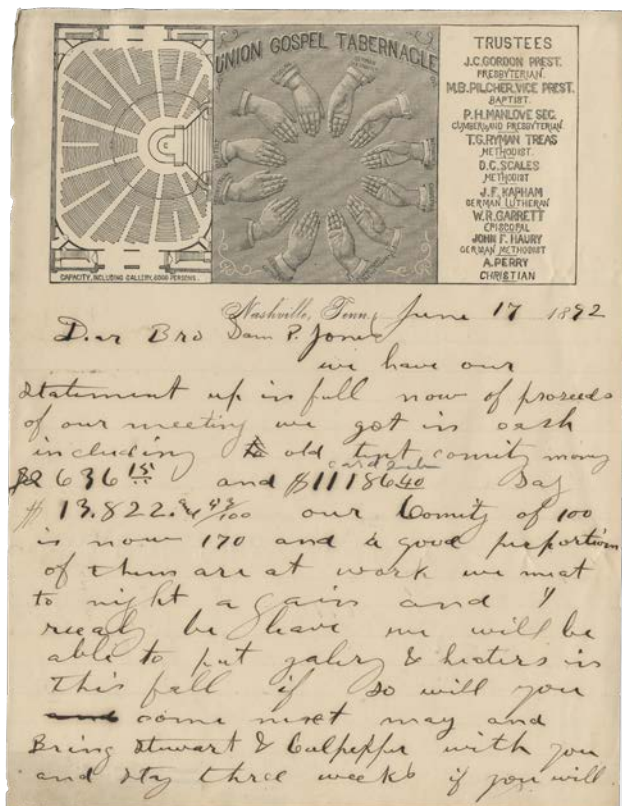 UNION GOSPEL TABERNACLE
TRUSTEES
J.C. GORDON PREST.
PRESBYTERIAN.
M.B. PILCHER. VICE PREST.
BAPTIST.
P.H. MANLOVE SEC.
CUMBERLAND PRESBYTERIAN.
T.G. RYMAN TREAS
METHODIST.
D.C. SCALES
METHODIST
J.F. KAPHAM
GERMAN LUTHERAN
W.R. GARRETT
EPISCOPAL
JOHN F. HAURY
GERMAN METHODIST
A. PERRY
CHRISTIAN
CAPACITY, INCLUDING GALLERY, 6000 PERSONS.
Nashville, Tenn. June 17 1892
Dear Bro Sam P. Jones
we have our
statement up in full now of proseeds
of our meeting we got in cash
including old tent comity mony
636 15 and $11186 40 Say
card sub
$ 13.822. our Comity of 100
is now 170 and a good perportion
of them are at work we meat
to night again and I
realy be leave we will be
able to put galery & heaters in
this fall if so will you
come next may and
Bring Stuwart & Culpepper with you
and stay three weeks if you will